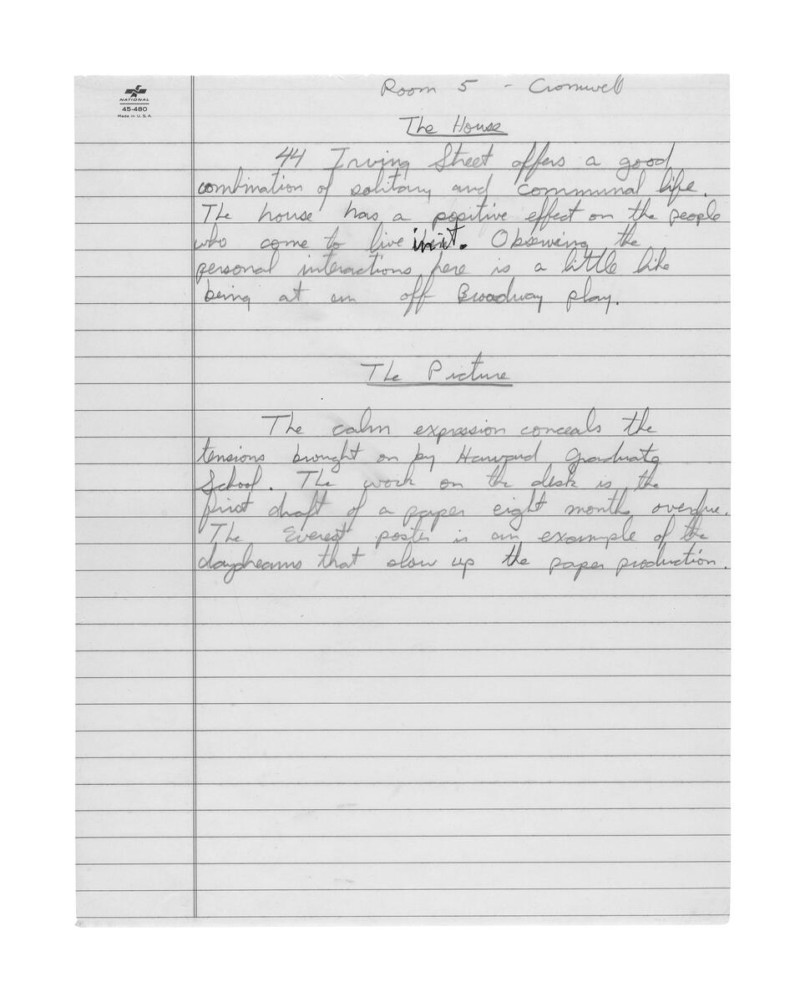 NATIONAL
45-480
Made in U.S.A.
Room 5 - Cromwell
The House
44 Irving Street offers a good
combination of solitary and communal life.
The house has a positive effect on the people
who come to live in it. Observing the
personal interactions here is a little like
being at an off Broadway play.
The Picture
The calm expression conceals the
tensions brought on by Harvard Graduate
School. The work on the desk is the
first draft of a paper eight months overdue.
The Everest poster is an example of the
daydreams that slow up the paper production.